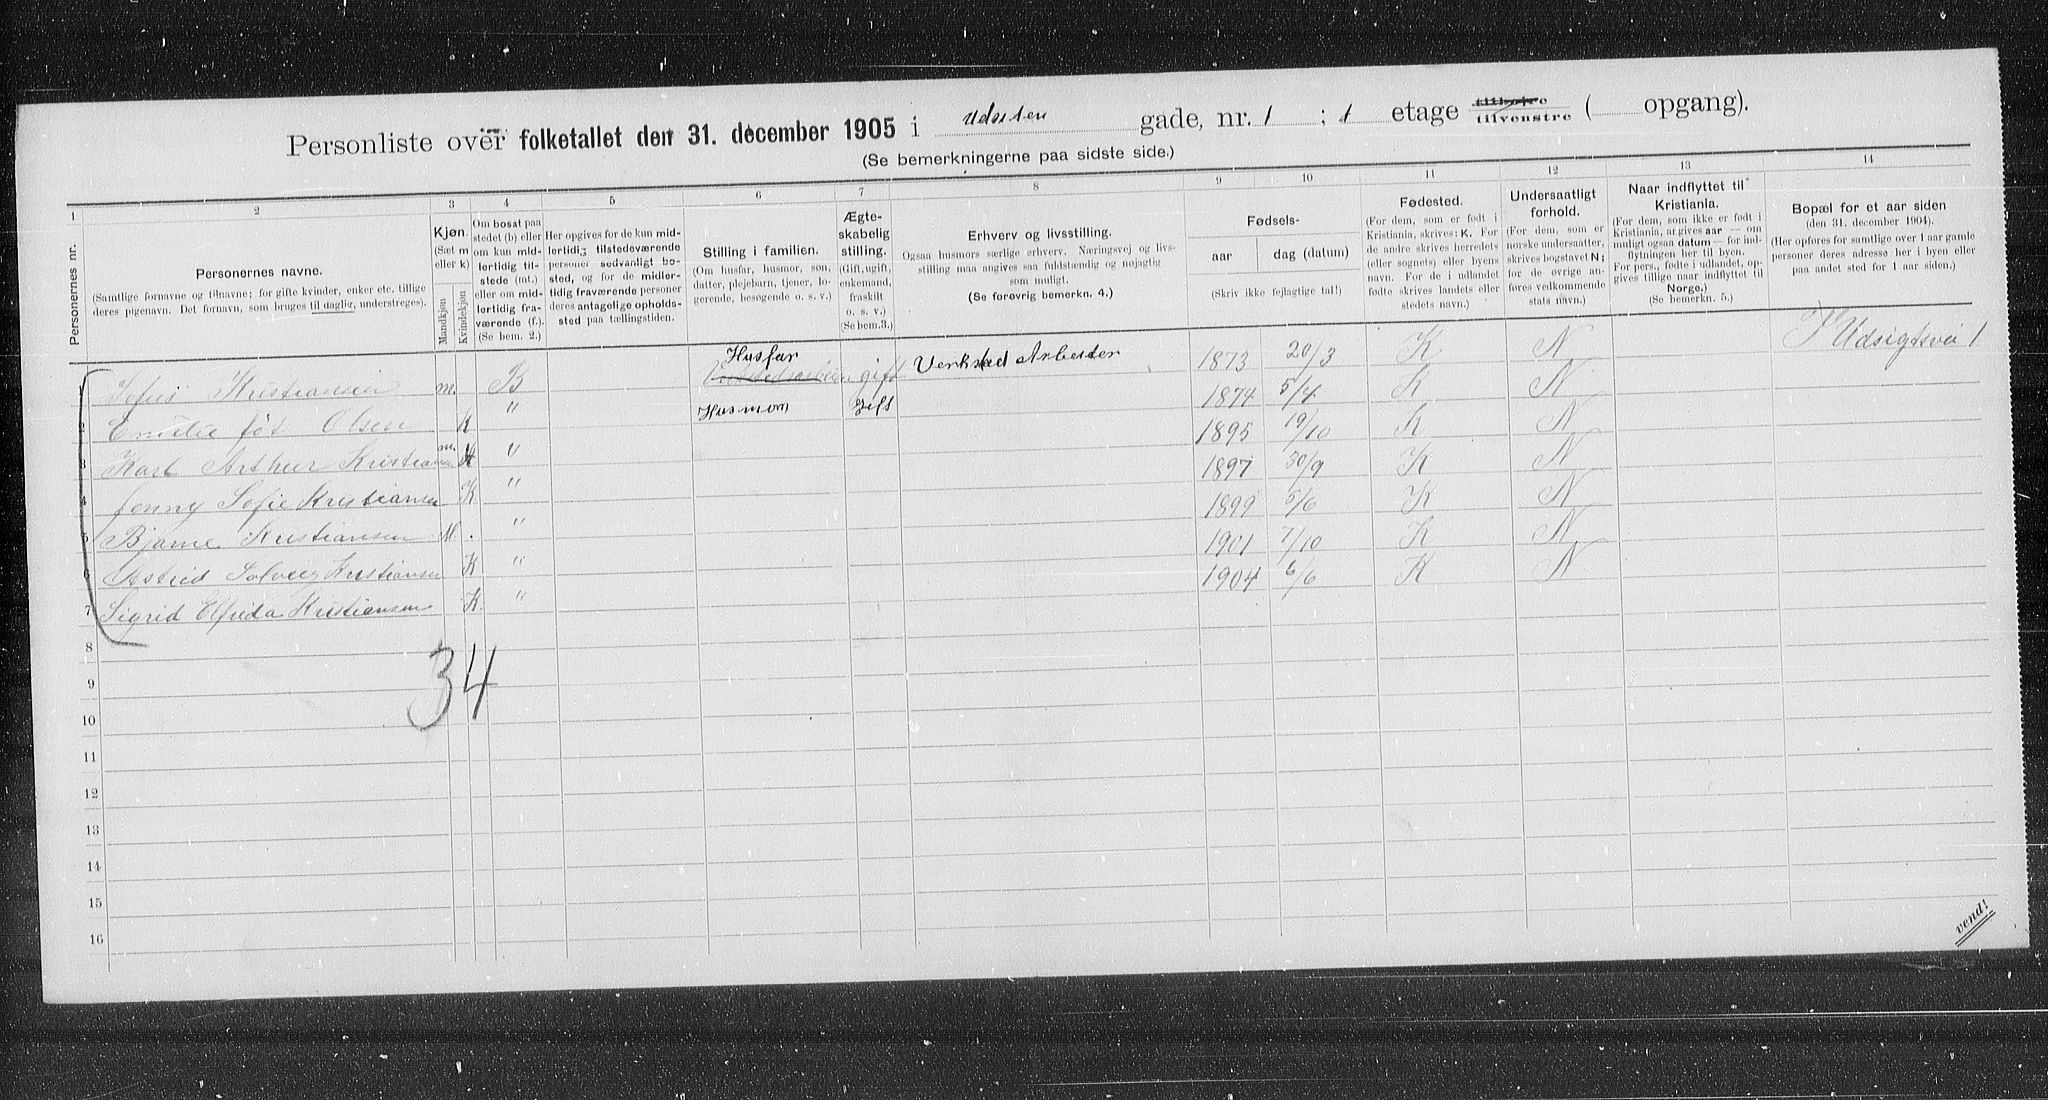 Personliste over folketallet den 31. december 1905 i Udsten gade, nr. 1 ; 1 etage tilhøire tilvenstre ( opgang).
(Se bemerkningerne paa sidste side.)
1 2 3 4 5 6 7 8 9 10 11 12 13 14
Personernes nr.
Personernes navne.
(Samtlige fornavne og tilnavne; for gifte kvinder, enker etc. tillige
deres pigenavn. Det fornavn, som bruges til daglig, understreges).
Kjøn.
(Sæt m
eller k)
Mandkjøn
Kvindekjøn
Om bosat paa
stedet (b) eller
om kun mid-
lertidig til-
stede (mt.)
eller om mid-
lertidig fra-
værende (f.).
(Se bem. 2.)
Her opgives for de kun mid-
lertidig tilstedeværende
personer sedvanligt bo-
sted, og for de midler-
tidig fraværende personer
deres antagelige opholds-
sted paa tællingstiden.
Stilling i familien.
(Om husfar, husmor, søn,
datter, plejebarn, tjener, lo-
gerende, besøgende o. s. v.)
Ægte-
skabelig
stilling.
(Gift, ugift,
enkemand,
fraskilt
o. s. v.)
(Se bem.3.)
Erhverv og livsstilling.
Ogsaa husmors særlige erhverv. Næringsvej og livs-
stilling maa angives saa fuldstændig og nøjagtig
som muligt.
(Se forøvrig bemerkn. 4.)
Fødsels-
aar dag (datum)
(Skriv ikke fejlagtige tal!)
Fødested.
(For dem, som er født i
Kristiania, skrives: K. For
de andre skrives herredets
(eller sognets) eller byens
navn. For de i udlandet
fødte skrives landets eller
stedets navn.)
Undersaatligt
forhold.
(For dem, som er
norske undersaatter,
skrives bogstavet N;
for de øvrige an-
føres vedkommende
stats navn.)
Naar indflyttet til
Kristiania.
(For dem, som ikke er født i
Kristiania, angives aar — om
muligt ogsaa datum — for ind-
flytningen her til byen.
For pers., fødte i udlandet, op-
gives tillige naar indflyttet til
Norge.)
(Se bemerkn. 5.)
Bopæl for et aar siden
(den 31. december 1904).
(Her opføres for samtlige over 1 aar gamle
personer deres adresse her i byen eller
paa andet sted for 1 aar siden.)
1 Kristiansen m. B Husfar gift Verksted Arbeider 1873 20/3 K N Udsigtsvei 1
2 Emilie föt Olsen K " Husmor gift 1874 5/4 K N
3 Karl Arthur Kristiansen m. " 1895 19/10 K N
4 Jenny Sofie Kristiansen K " 1897 30/9 K N
5 Bjarne Kristiansen M. " 1899 5/6 K N
6 Astrid Solveig Kristiansen K " 1901 7/10 K N
7 Sigrid Elfrida Kristiansen K. " 1904 6/6 K N
8
34
9
10
11
12
13
14
15
16
vend!